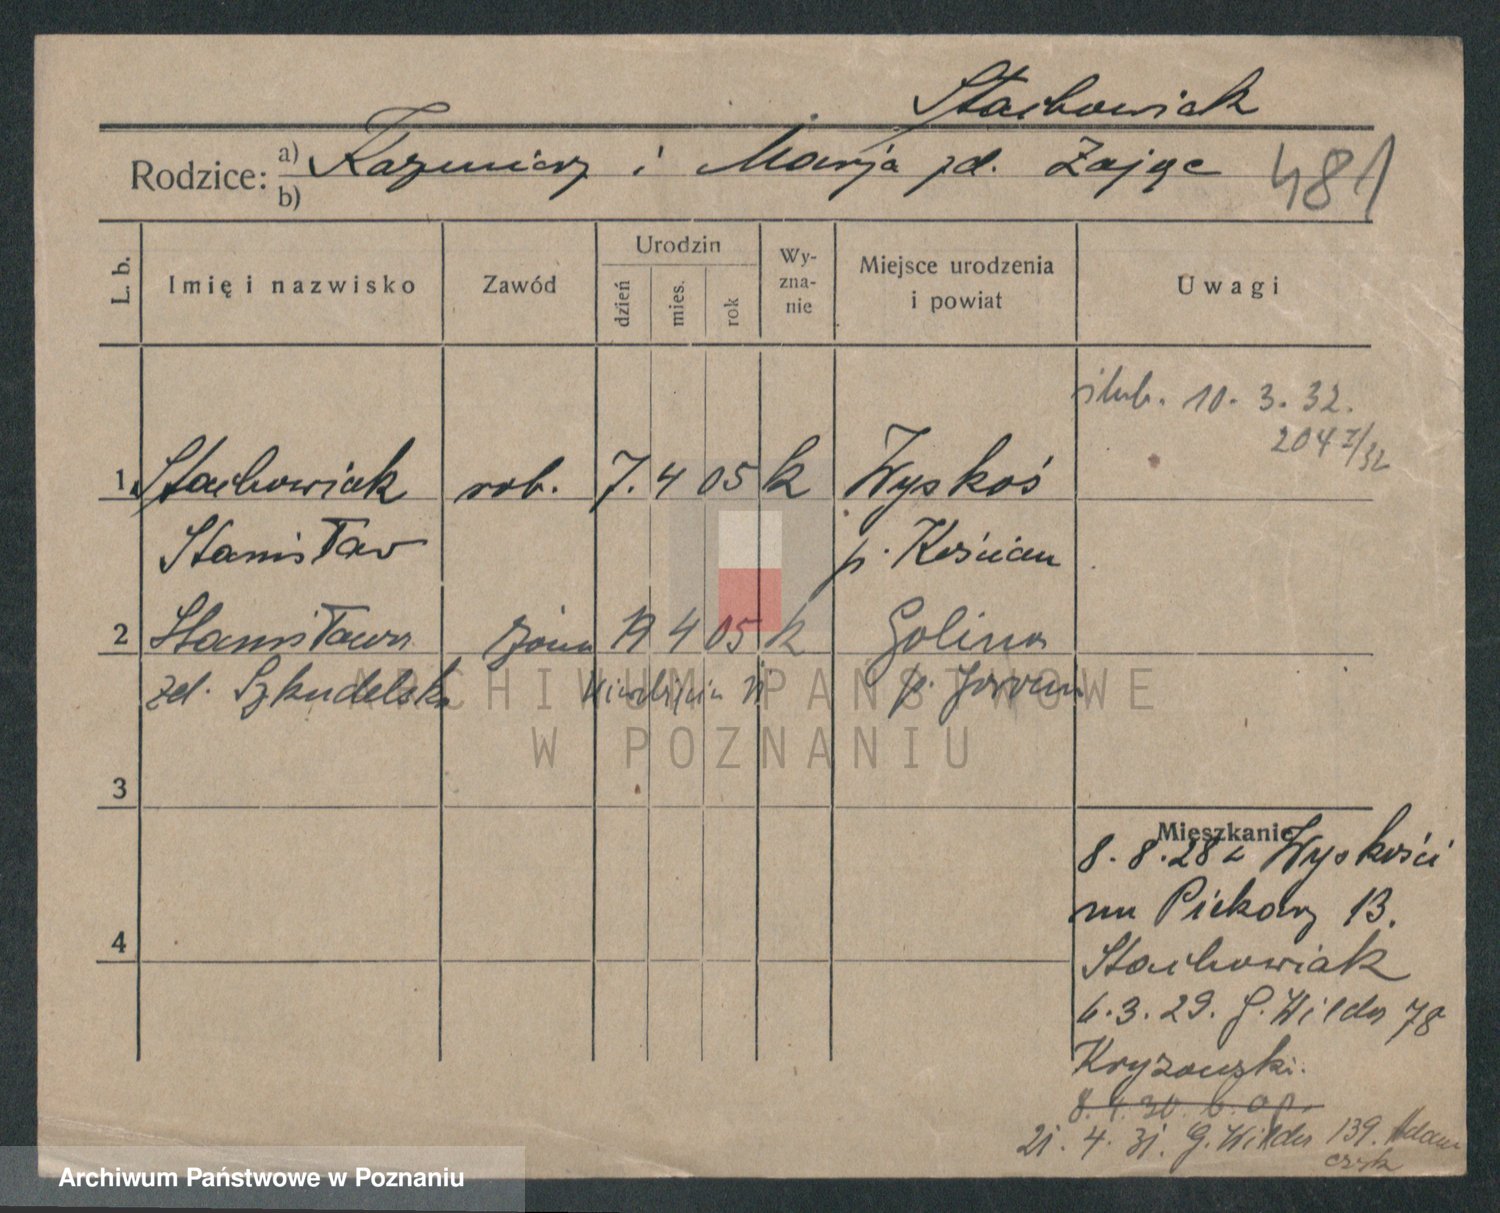 Stachowiak
Rodzice: a) Kazimierz i Marja zd. Zając 481
b)
L. b. Imię i nazwisko Zawód Urodzin dzień mies. rok Wy-zna-nie Miejsce urodzenia i powiat Uwagi
ślub. 10. 3. 32.
204 I/32
1 Stachowiak rob. 7. 4 05 k Wyskoś
Stanisław p. Kościan
2 Stanisława żona 19 4 05 k Golina
zd. Szkudelska p. Jarocin
3
4
Mieszkanie
8. 8. 28 z Wyskości
na Piekary 13.
Stachowiak
6. 3. 29. G. Wilda 78
Kryzanski.
8. 4. 30. b. op.
21. 4. 31. G. Wilda 139. Adam
czyk
ARCHIWUM PAŃSTWOWE
W POZNANIU
Archiwum Państwowe w Poznaniu